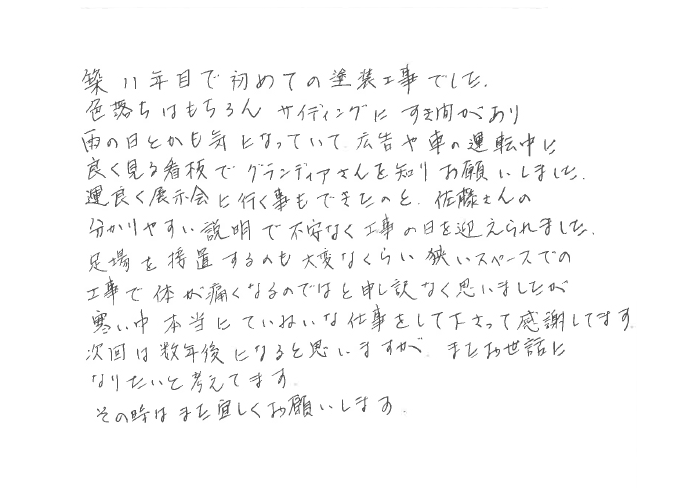 築11年目で初めての塗装工事でした.
色落ちはもちろん サイディングに すき間があり
雨の日とかも気になっていて 広告や車の運転中に
良く見る看板でグランディアさんを知りお願いしました.
運良く展示会に行く事もできたのと. 佐藤さんの
分かりやすい説明で不安なく工事の日を迎えられました.
足場を接置するのも大変なくらい狭いスペースでの
工事で体が痛くなるのではと申し訳なく思いましたが
寒い中 本当にていねいな仕事をして下さって感謝してます.
次回は数年後になると思いますが. またお世話に
なりたいと考えてます.
その時はまた宜しくお願いします.